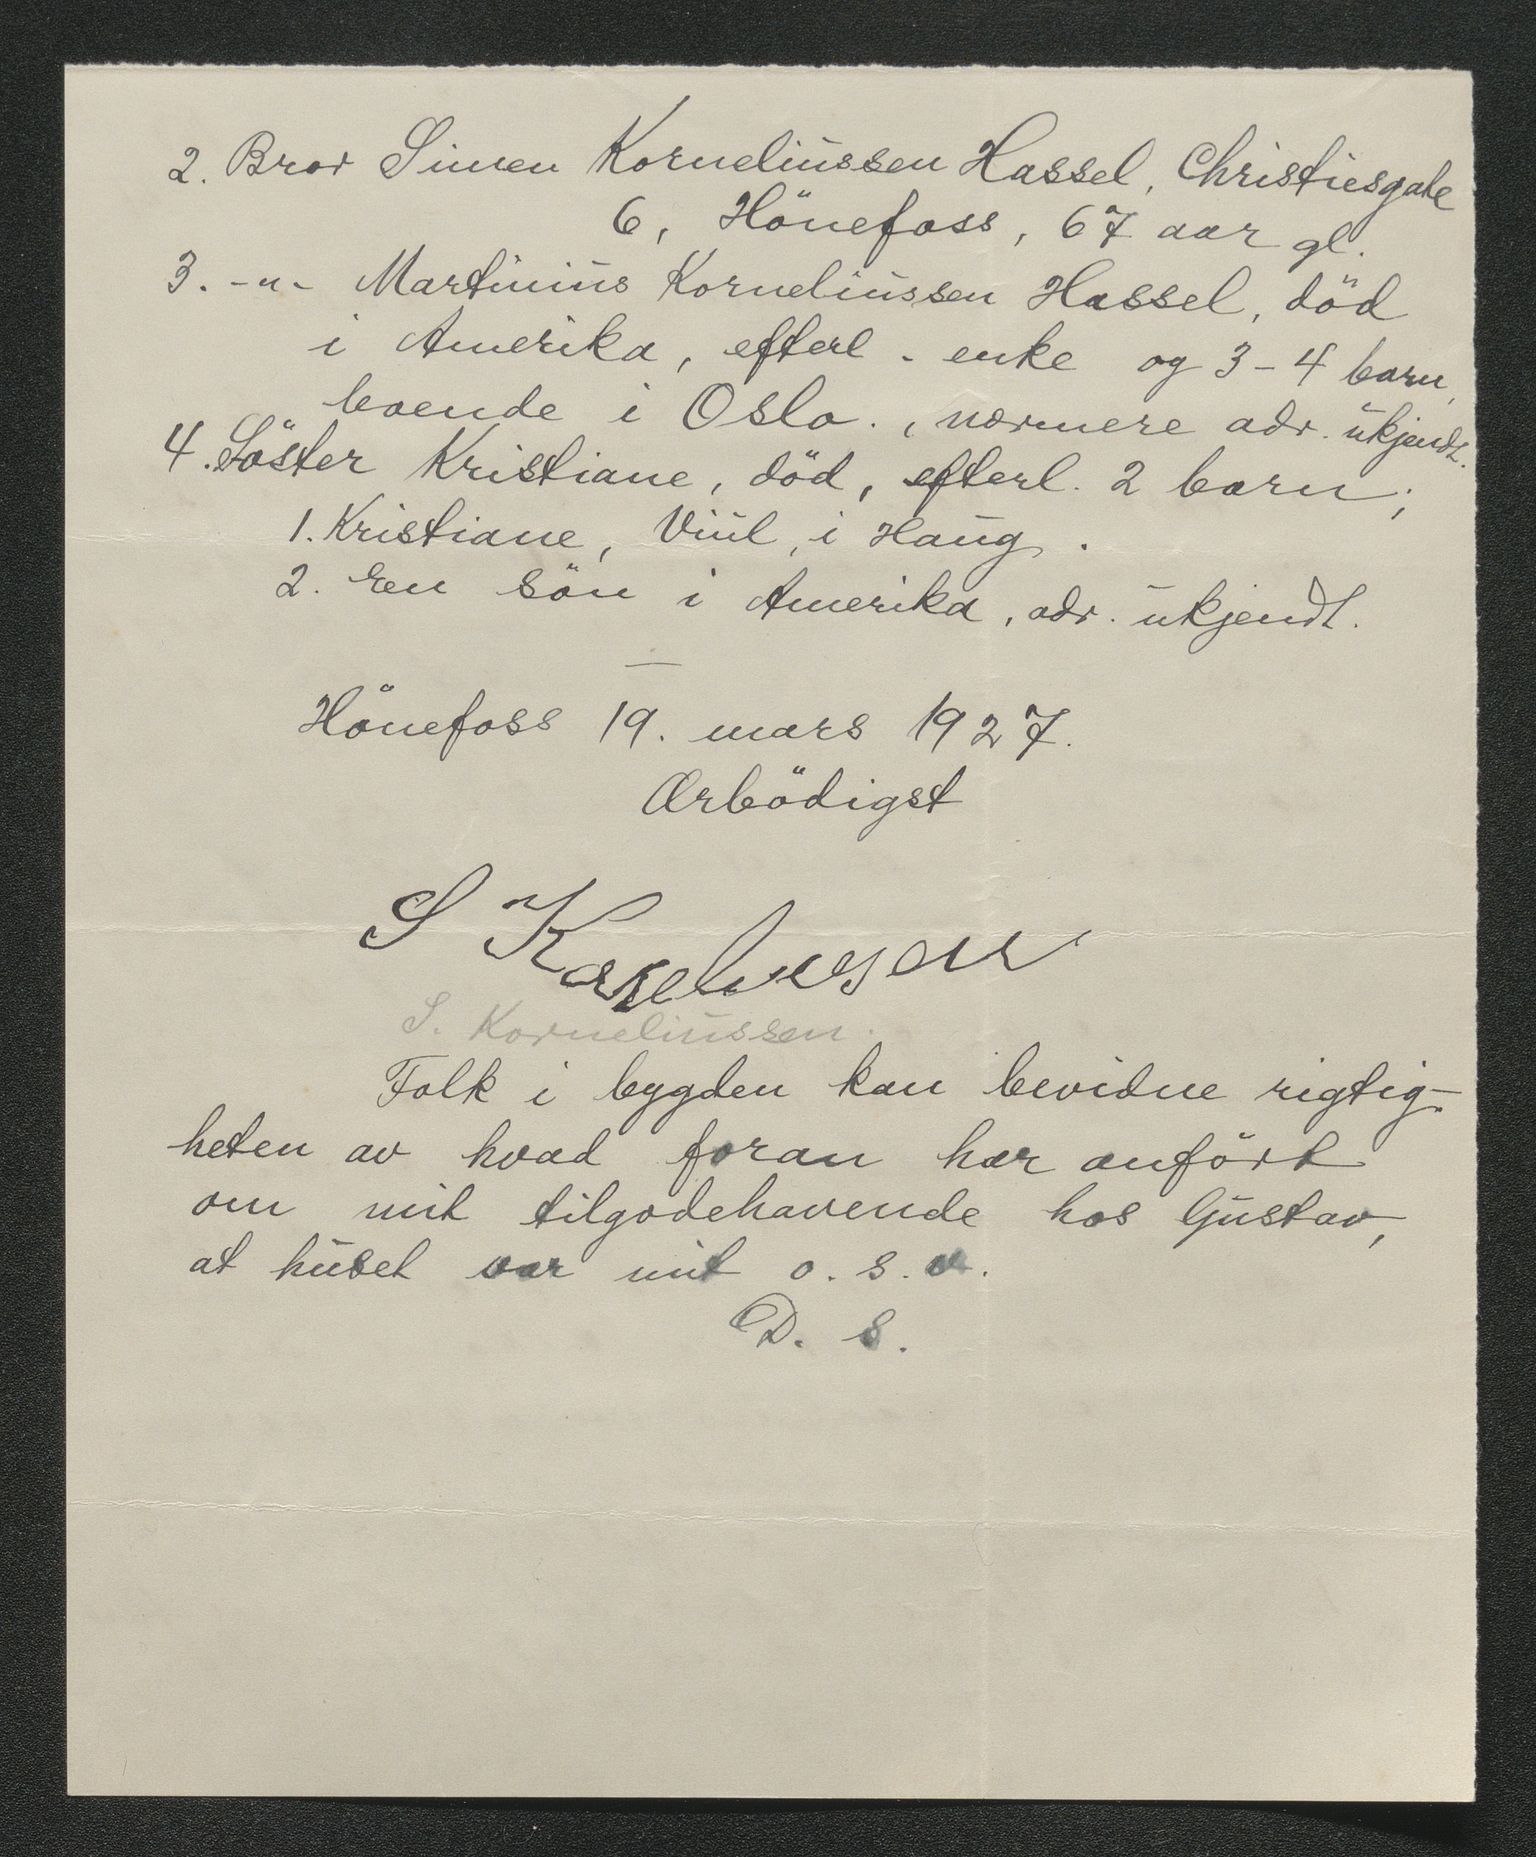 2. Bror Simen Korneliussen Hassel, Christiesgate
6, Hönefoss, 67 aar gl.
3. -"- Martinius Korneliussen Hassel, död
i Amerika, efterl. enke og 3-4 barn,
boende i Oslo., nærmere adr. ukjendt.
4. Söster Kristiane, död, efterl. 2 barn;
1. Kristiane, Viul, i Haug.
2. En sön i Amerika, adr. ukjendt.
—
Hönefoss 19. mars 1927.
Ærbödigst
S Korneliussen
S. Korneliussen.
Folk i bygden kan bevidne rigtig-
heten av hvad foran har anfört
om mit tilgodehavende hos Gustav,
at huset var mit o. s. v.
D. S.